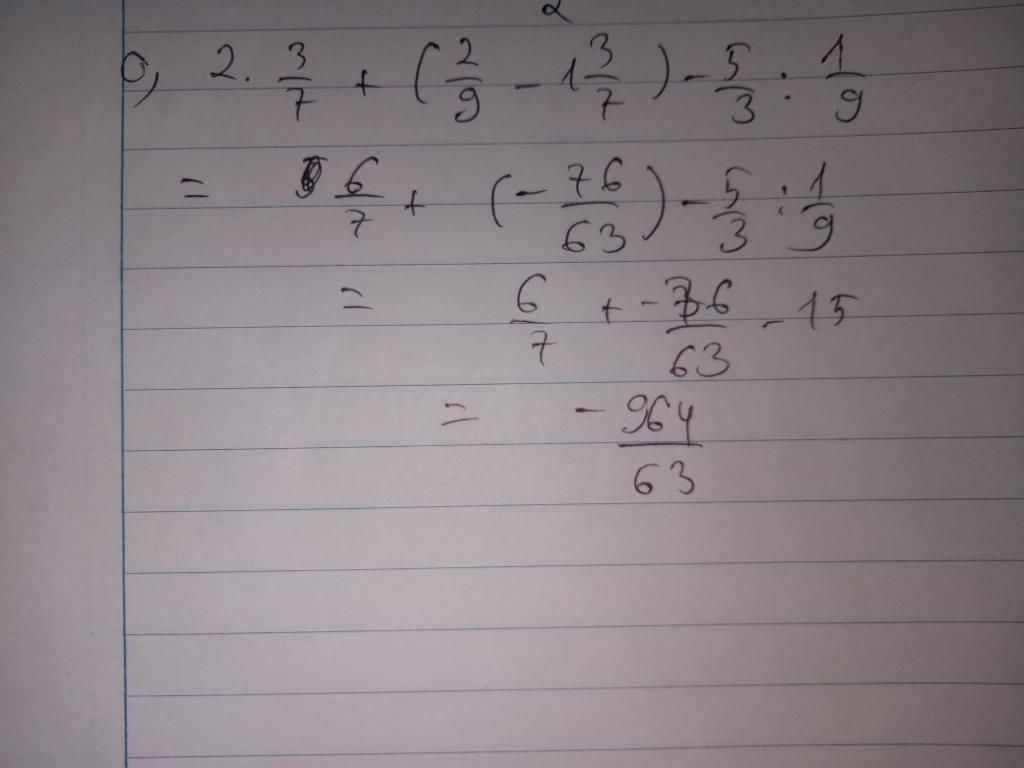 2
c, 2. 3/7 + (2/9 - 1 3/7) - 5/3 : 1/9
= 6/7 + (- 76/63) - 5/3 : 1/9
= 6/7 + -76/63 - 15
= - 964/63